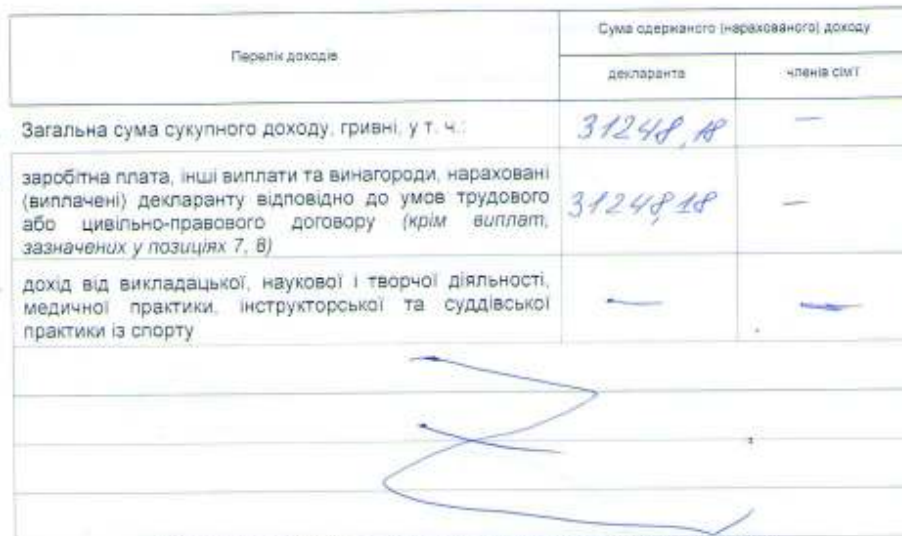 Перелік доходів
Сума одержаного (нарахованого) доходу
декларанта
членів сім'ї
Загальна сума сукупного доходу, гривні, у т. ч.:
31248,18
—
заробітна плата, інші виплати та винагороди, нараховані
(виплачені) декларанту відповідно до умов трудового
або цивільно-правового договору (крім виплат,
зазначених у позиціях 7, 8)
31248,18
—
дохід від викладацької, наукової і творчої діяльності,
медичної практики, інструкторської та суддівської
практики із спорту
—
—